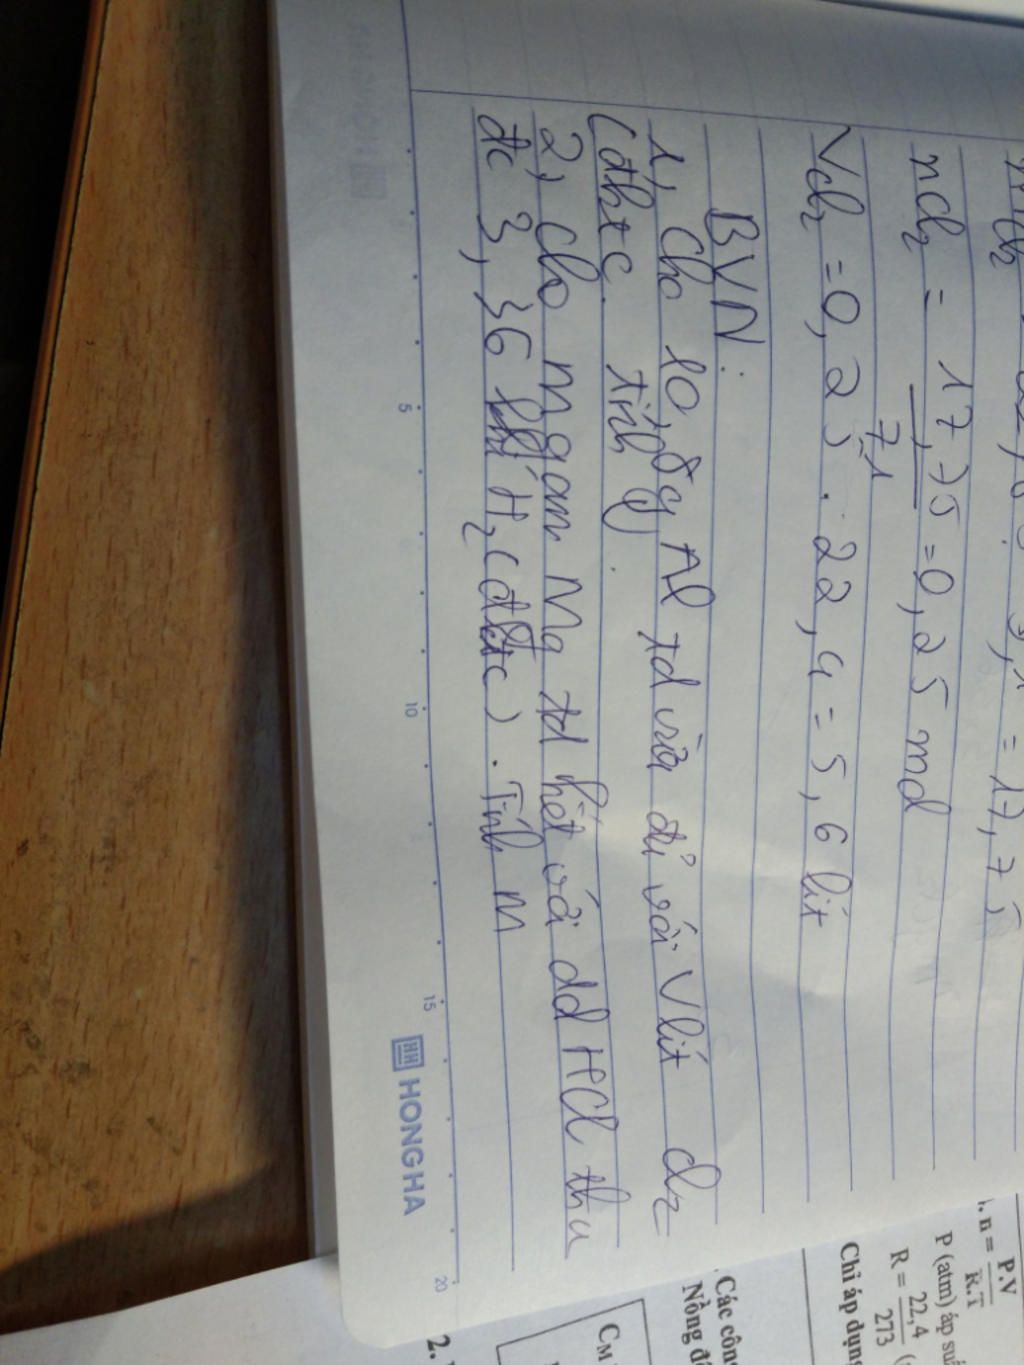 nCl₂ = 17,75 / 71 = 0,25 mol
VCl₂ = 0,25 . 22,4 = 5,6 lít
BVN:
1, Cho 10,8g Al td vừa đủ với V lít Cl₂
(đktc. tính
2, cho m gam Mg td hết với dd HCl thu
đc 3,36 khí H₂ (đktc). Tính m
5
10
15
20
HONG HA
. n = P.V / R.T
P (atm) áp su
R = 22,4 / 273 (
Chỉ áp dụng
. Các côn
Nồng đ
C_M
2.